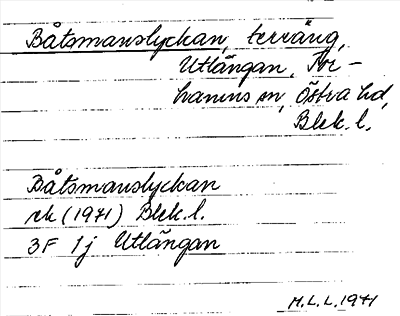 Båtsmanslyckan, terräng,
Utlängan, Tor-
hamns sn, Östra hd,
Blek. l.
Båtsmanslyckan
rk (1971) Blek. l.
3F 1j Utlängan
M.L.L. 1971